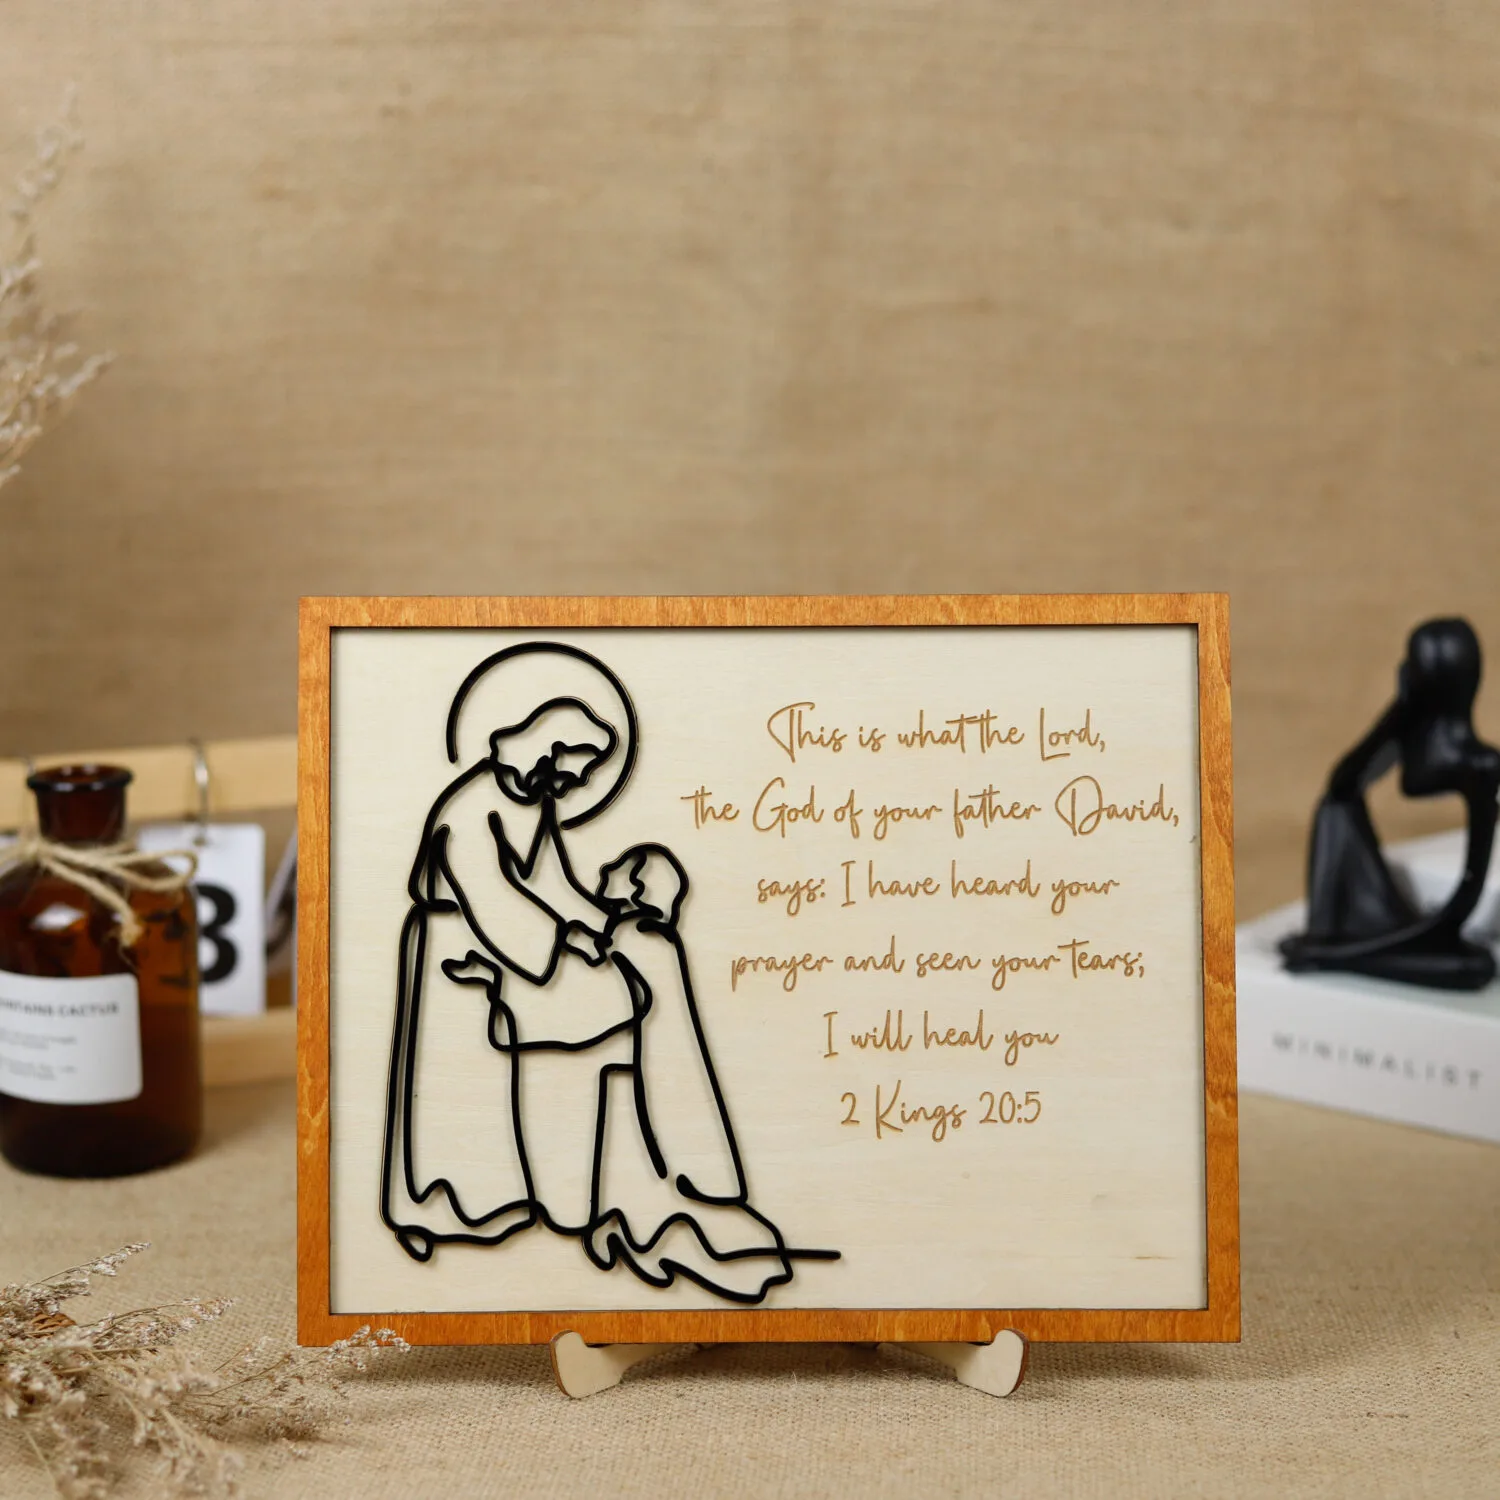 This is what the Lord,
the God of your father David,
says: I have heard your
prayer and seen your tears;
I will heal you
2 Kings 20:5
CACTUS
3
MINIMALIST